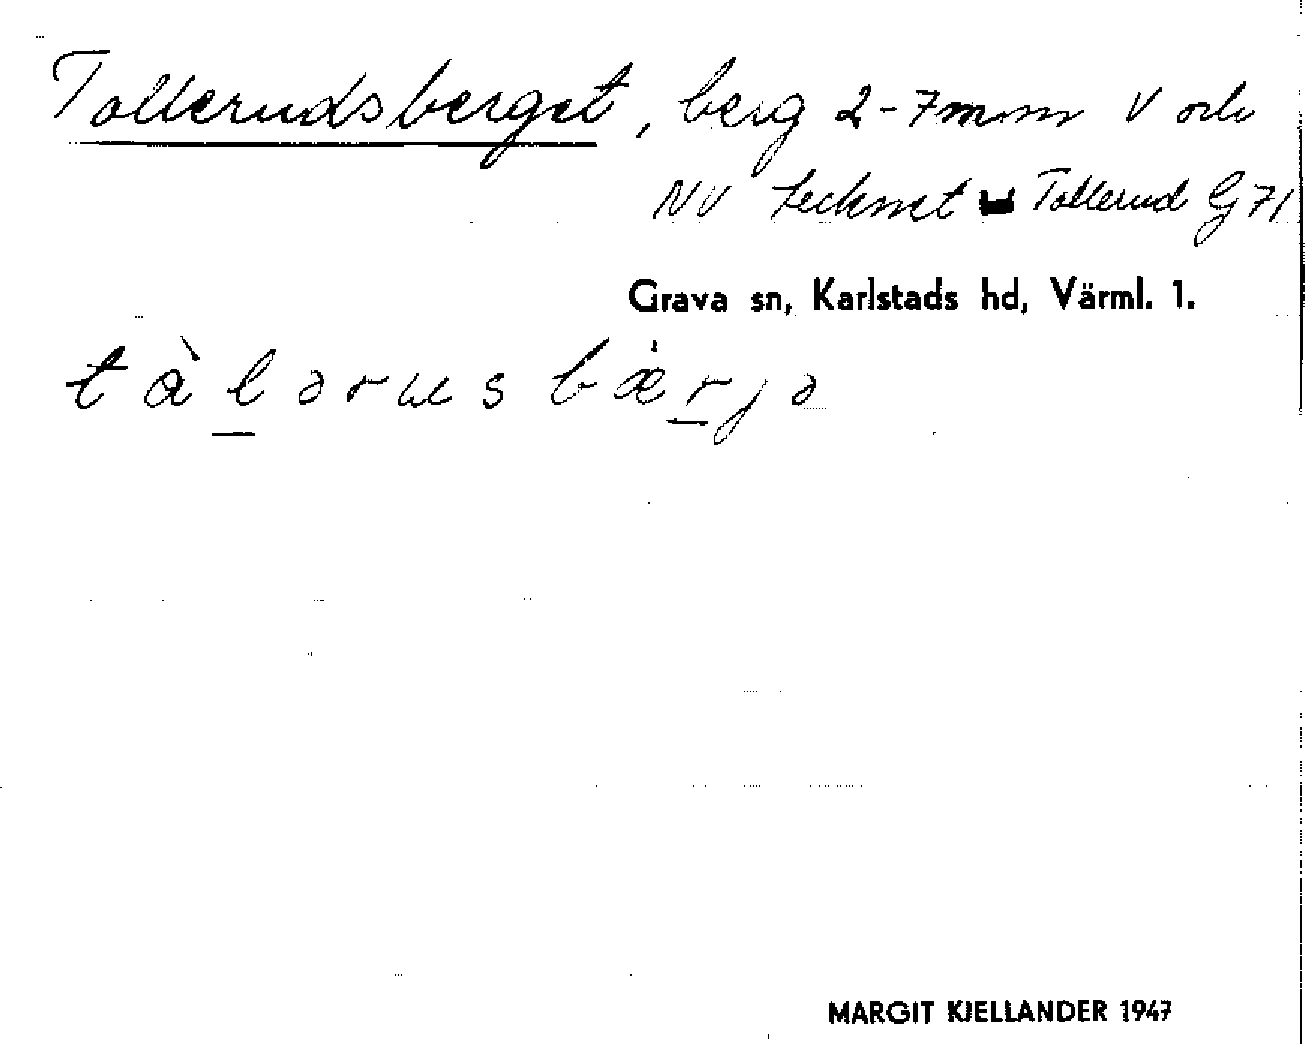 Tollerudsberget, berg 2-7mm V och
NV tecknet Tollerud Gg 71
Grava sn, Karlstads hd, Värml. 1.
tàlərusbærjə
MARGIT KJELLANDER 1947